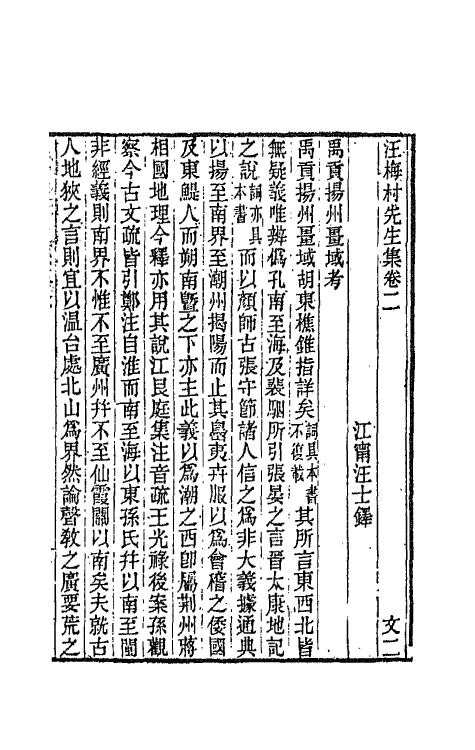 汪梅村先生集卷二　文二
江甯汪士鐸
禹貢揚州畺域考
禹貢揚州畺域胡東樵錐指詳矣詞具本書不復載其所言東西北皆
無疑義唯辨僞孔南至海及裴駰所引張晏之言晉太康地記
之說詞亦具本書而以顏師古張守節諸人信之爲非大義據通典
以揚至南界至潮州揭陽而止其島夷卉服以爲會稽之倭國
及東鯷人而朔南暨之下亦主此義以爲潮之西卽屬荆州蔣
相國地理今釋亦用其說江艮庭集注音疏王光祿後案孫觀
察今古文疏皆引鄭注自淮而南至海以東孫氏幷以南至閩
非經義則南界不惟不至廣州幷不至仙霞關以南矣夫就古
人地狹之言則宜以温台處北山爲界然論聲敎之廣要荒之